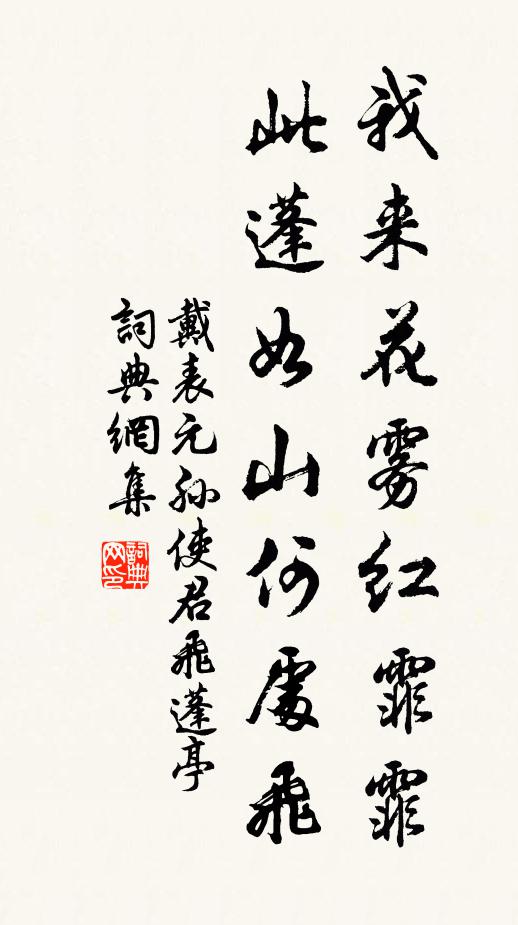 我来花雾红霏霏
此蓬如山何處飛
戴表元孙使君飛蓬亭
詞典網集
詞典
网印